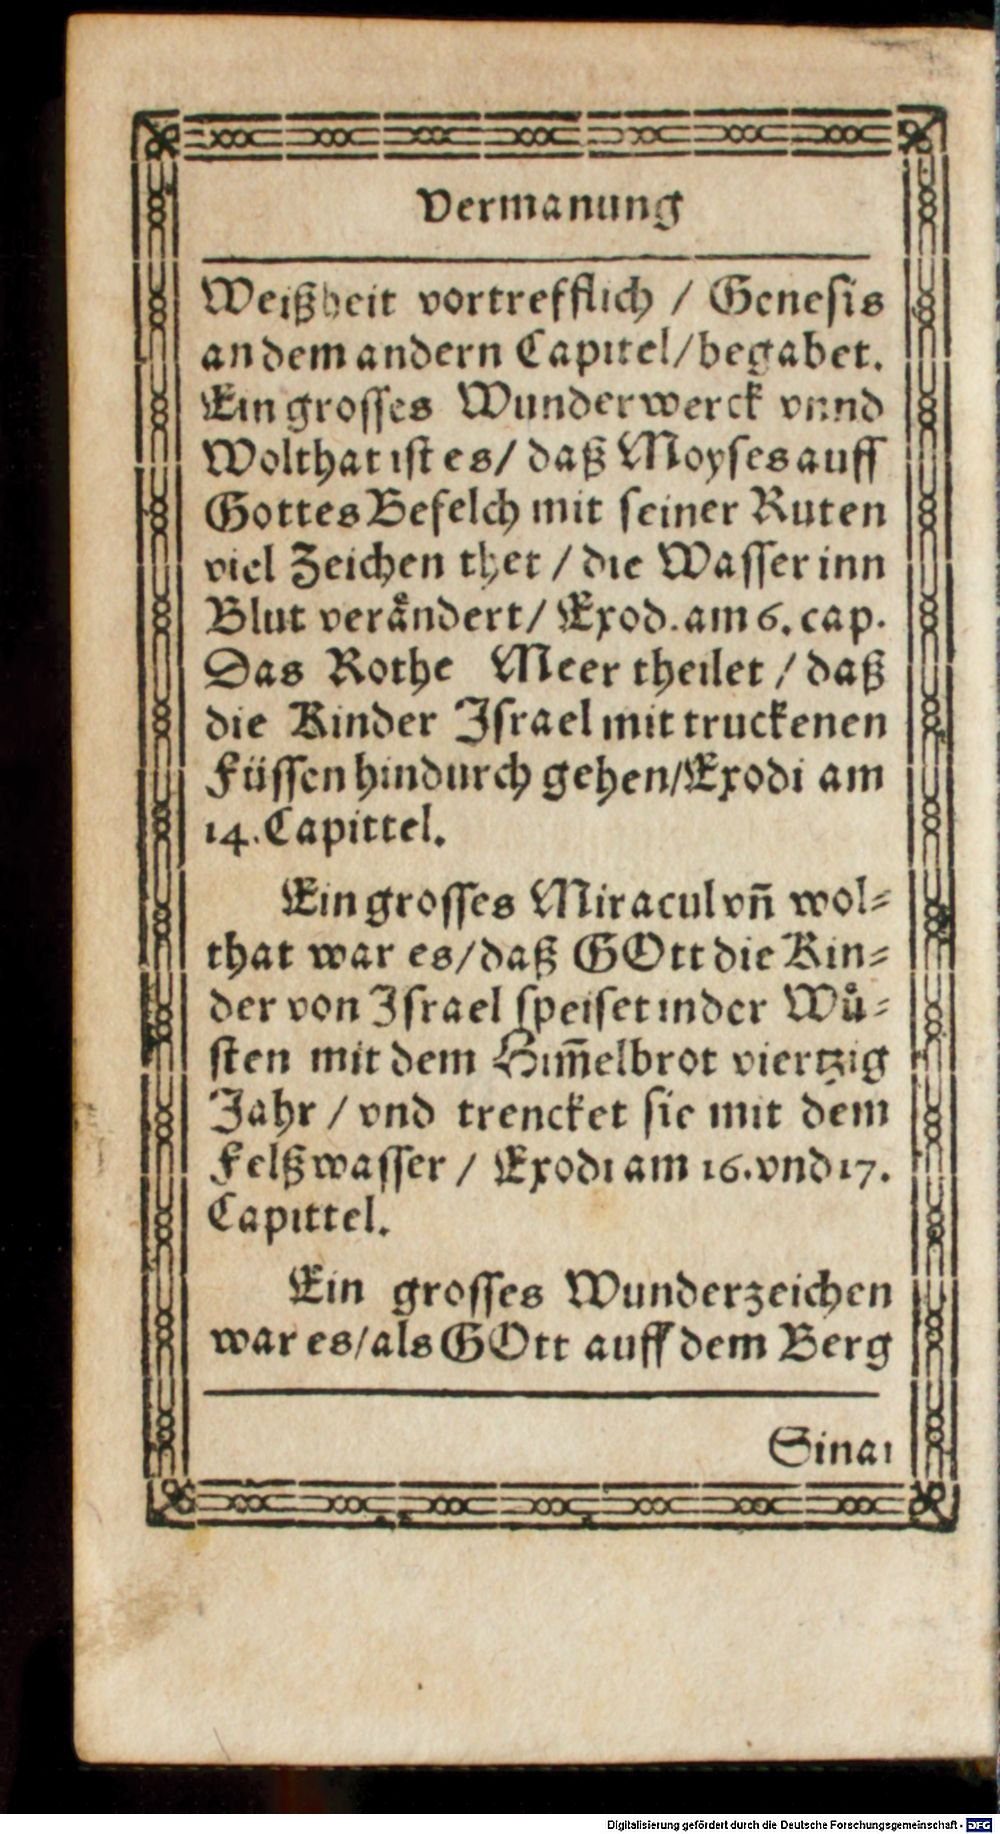 Vermanung
Weißheit vortrefflich / Genesis
an dem andern Capitel/begabet.
Ein grosses Wunderwerck vnnd
Wolthat ist es/ daß Moyses auff
Gottes Befelch mit seiner Ruten
viel Zeichen thet / die Wasser inn
Blut veraͤndert/ Exod. am 6. cap.
Das Rothe Meer theilet / daß
die Kinder Israel mit truckenen
Füssen hindurch gehen/Exodi am
14. Capittel.
Ein grosses Miracul vn̄ wol⸗
that war es/daß GOtt die Kin⸗
der von Israel speiset in der Wuͤ⸗
sten mit dem Him̄elbrot viertzig
Jahr / vnd trencket sie mit dem
Felßwasser / Exodi am 16. vnd 17.
Capittel.
Ein grosses Wunderzeichen
war es/als GOtt auff dem Berg
Sinai
Digitalisierung gefördert durch die Deutsche Forschungsgemeinschaft - DFG